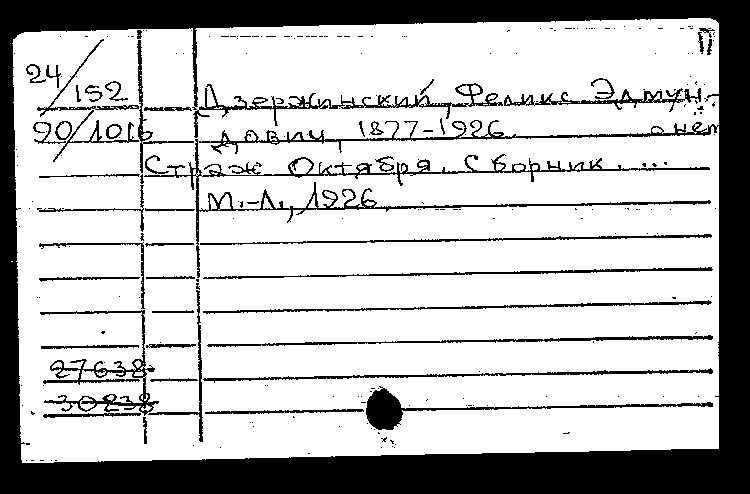 24/152 Дзержинский, Феликс Эдмун-
90/1016 дович, 1877-1926. о нем
Страж Октября. Сборник. ...
М.-Л., 1926.
27632
30238